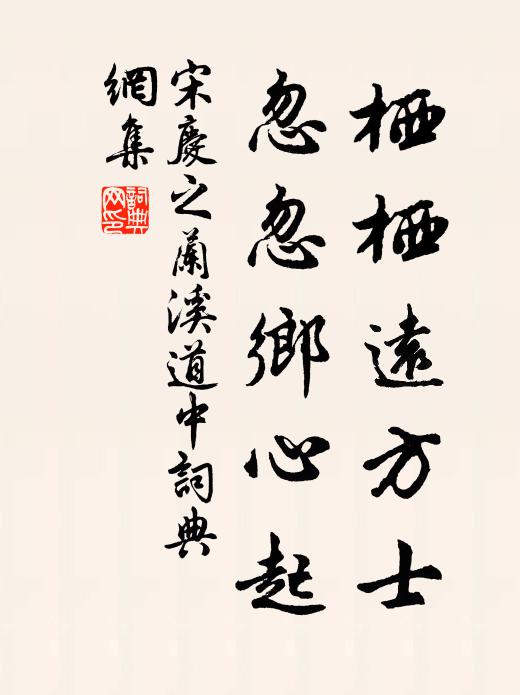 栖栖遠方士
忽忽鄉心起
宋慶之蘭溪道中詞典
網集
詞典
网印